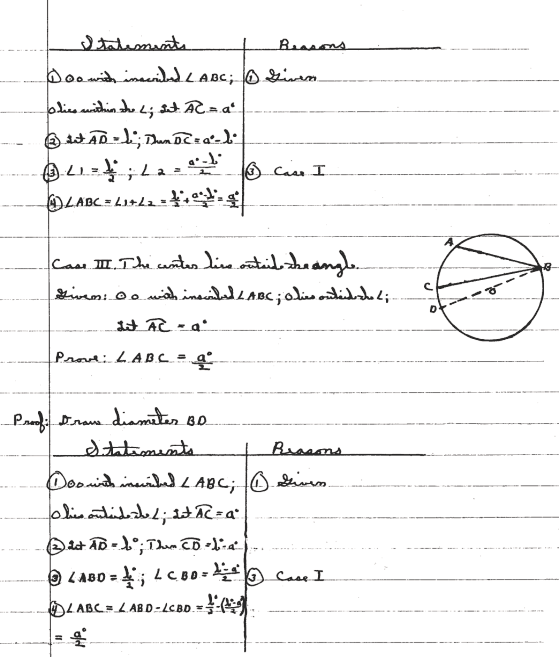 Statements Reasons
① ⊙O with inscribed ∠ABC; ① Given
O lies within the ∠; Let AC = a°
② Let AD = b°; Then DC = a°-b°
③ ∠1 = b°/2 ; ∠2 = (a°-b°)/2 ③ Case I
④ ∠ABC = ∠1+∠2 = b°/2 + (a°-b°)/2 = a°/2
Case III. The center lies outside the angle.
Given: ⊙O with inscribed ∠ABC; O lies outside the ∠;
Let AC = a°
Prove: ∠ABC = a°/2
A
B
C
D
O
Proof: Draw diameter BD
Statements Reasons
① ⊙O with inscribed ∠ABC; ① Given
O lies outside the ∠; Let AC = a°
② Let AD = b°; Then CD = b°-a°
③ ∠ABD = b°/2 ; ∠CBD = (b°-a°)/2 ③ Case I
④ ∠ABC = ∠ABD - ∠CBD = b°/2 - (b°-a°)/2
= a°/2